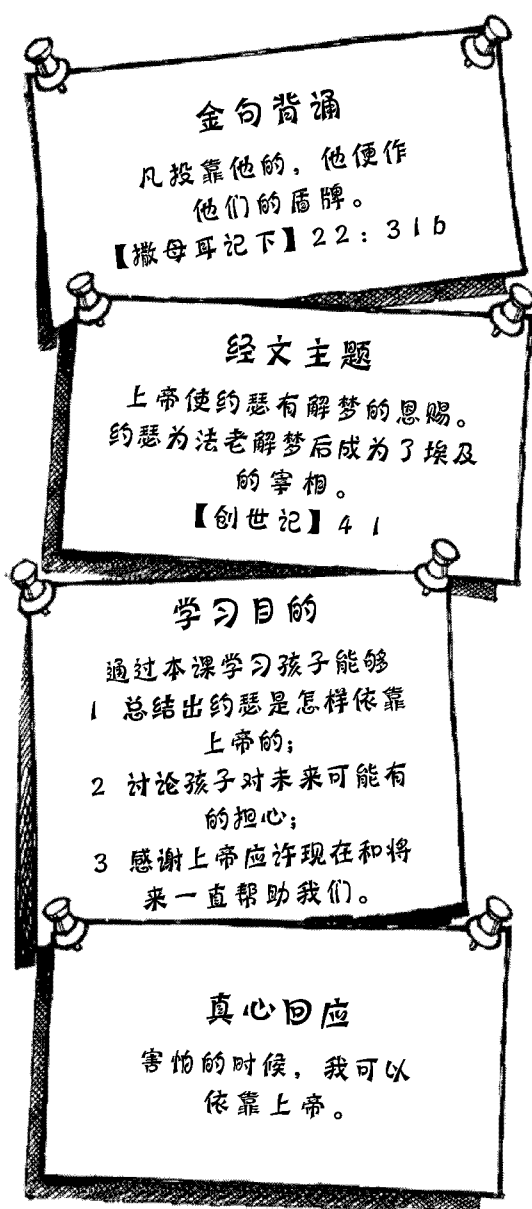 金句背诵
凡投靠他的，他便作
他们的盾牌。
【撒母耳记下】22：31b
经文主题
上帝使约瑟有解梦的恩赐。
约瑟为法老解梦后成为了埃及
的宰相。
【创世记】41
学习目的
通过本课学习孩子能够
1 总结出约瑟是怎样依靠
上帝的；
2 讨论孩子对未来可能有
的担心；
3 感谢上帝应许现在和将
来一直帮助我们。
真心回应
害怕的时候，我可以
依靠上帝。